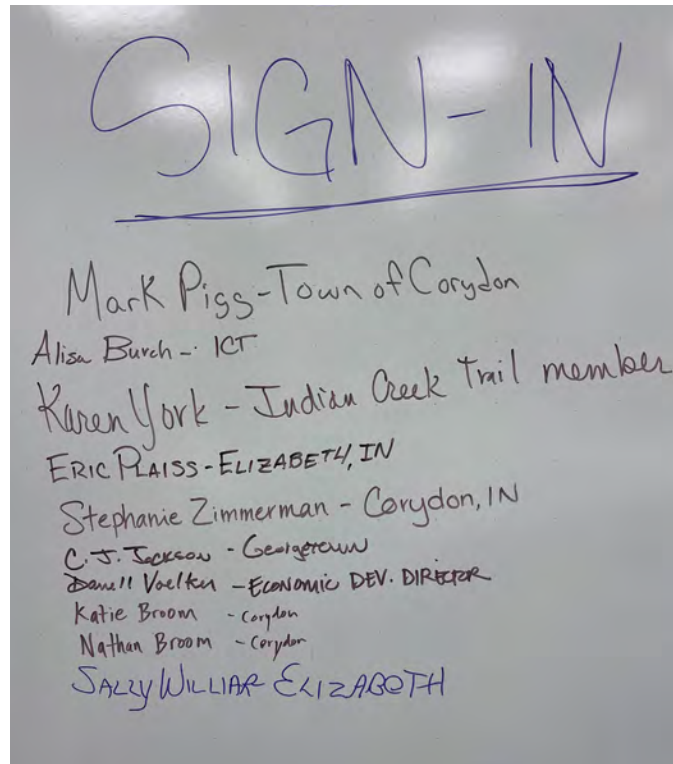 SIGN-IN
Mark Piss - Town of Corydon
Alisa Burch - ICT
Karen York - Indian Creek Trail member
ERIC PLAISS - ELIZABETH, IN
Stephanie Zimmerman - Corydon, IN
C. J. JACKSON - Georgetown
Darrell Voelker - ECONOMIC DEV. DIRECTOR
Katie Broom - Corydon
Nathan Broom - Corydon
SALLY WILLIAR ELIZABETH